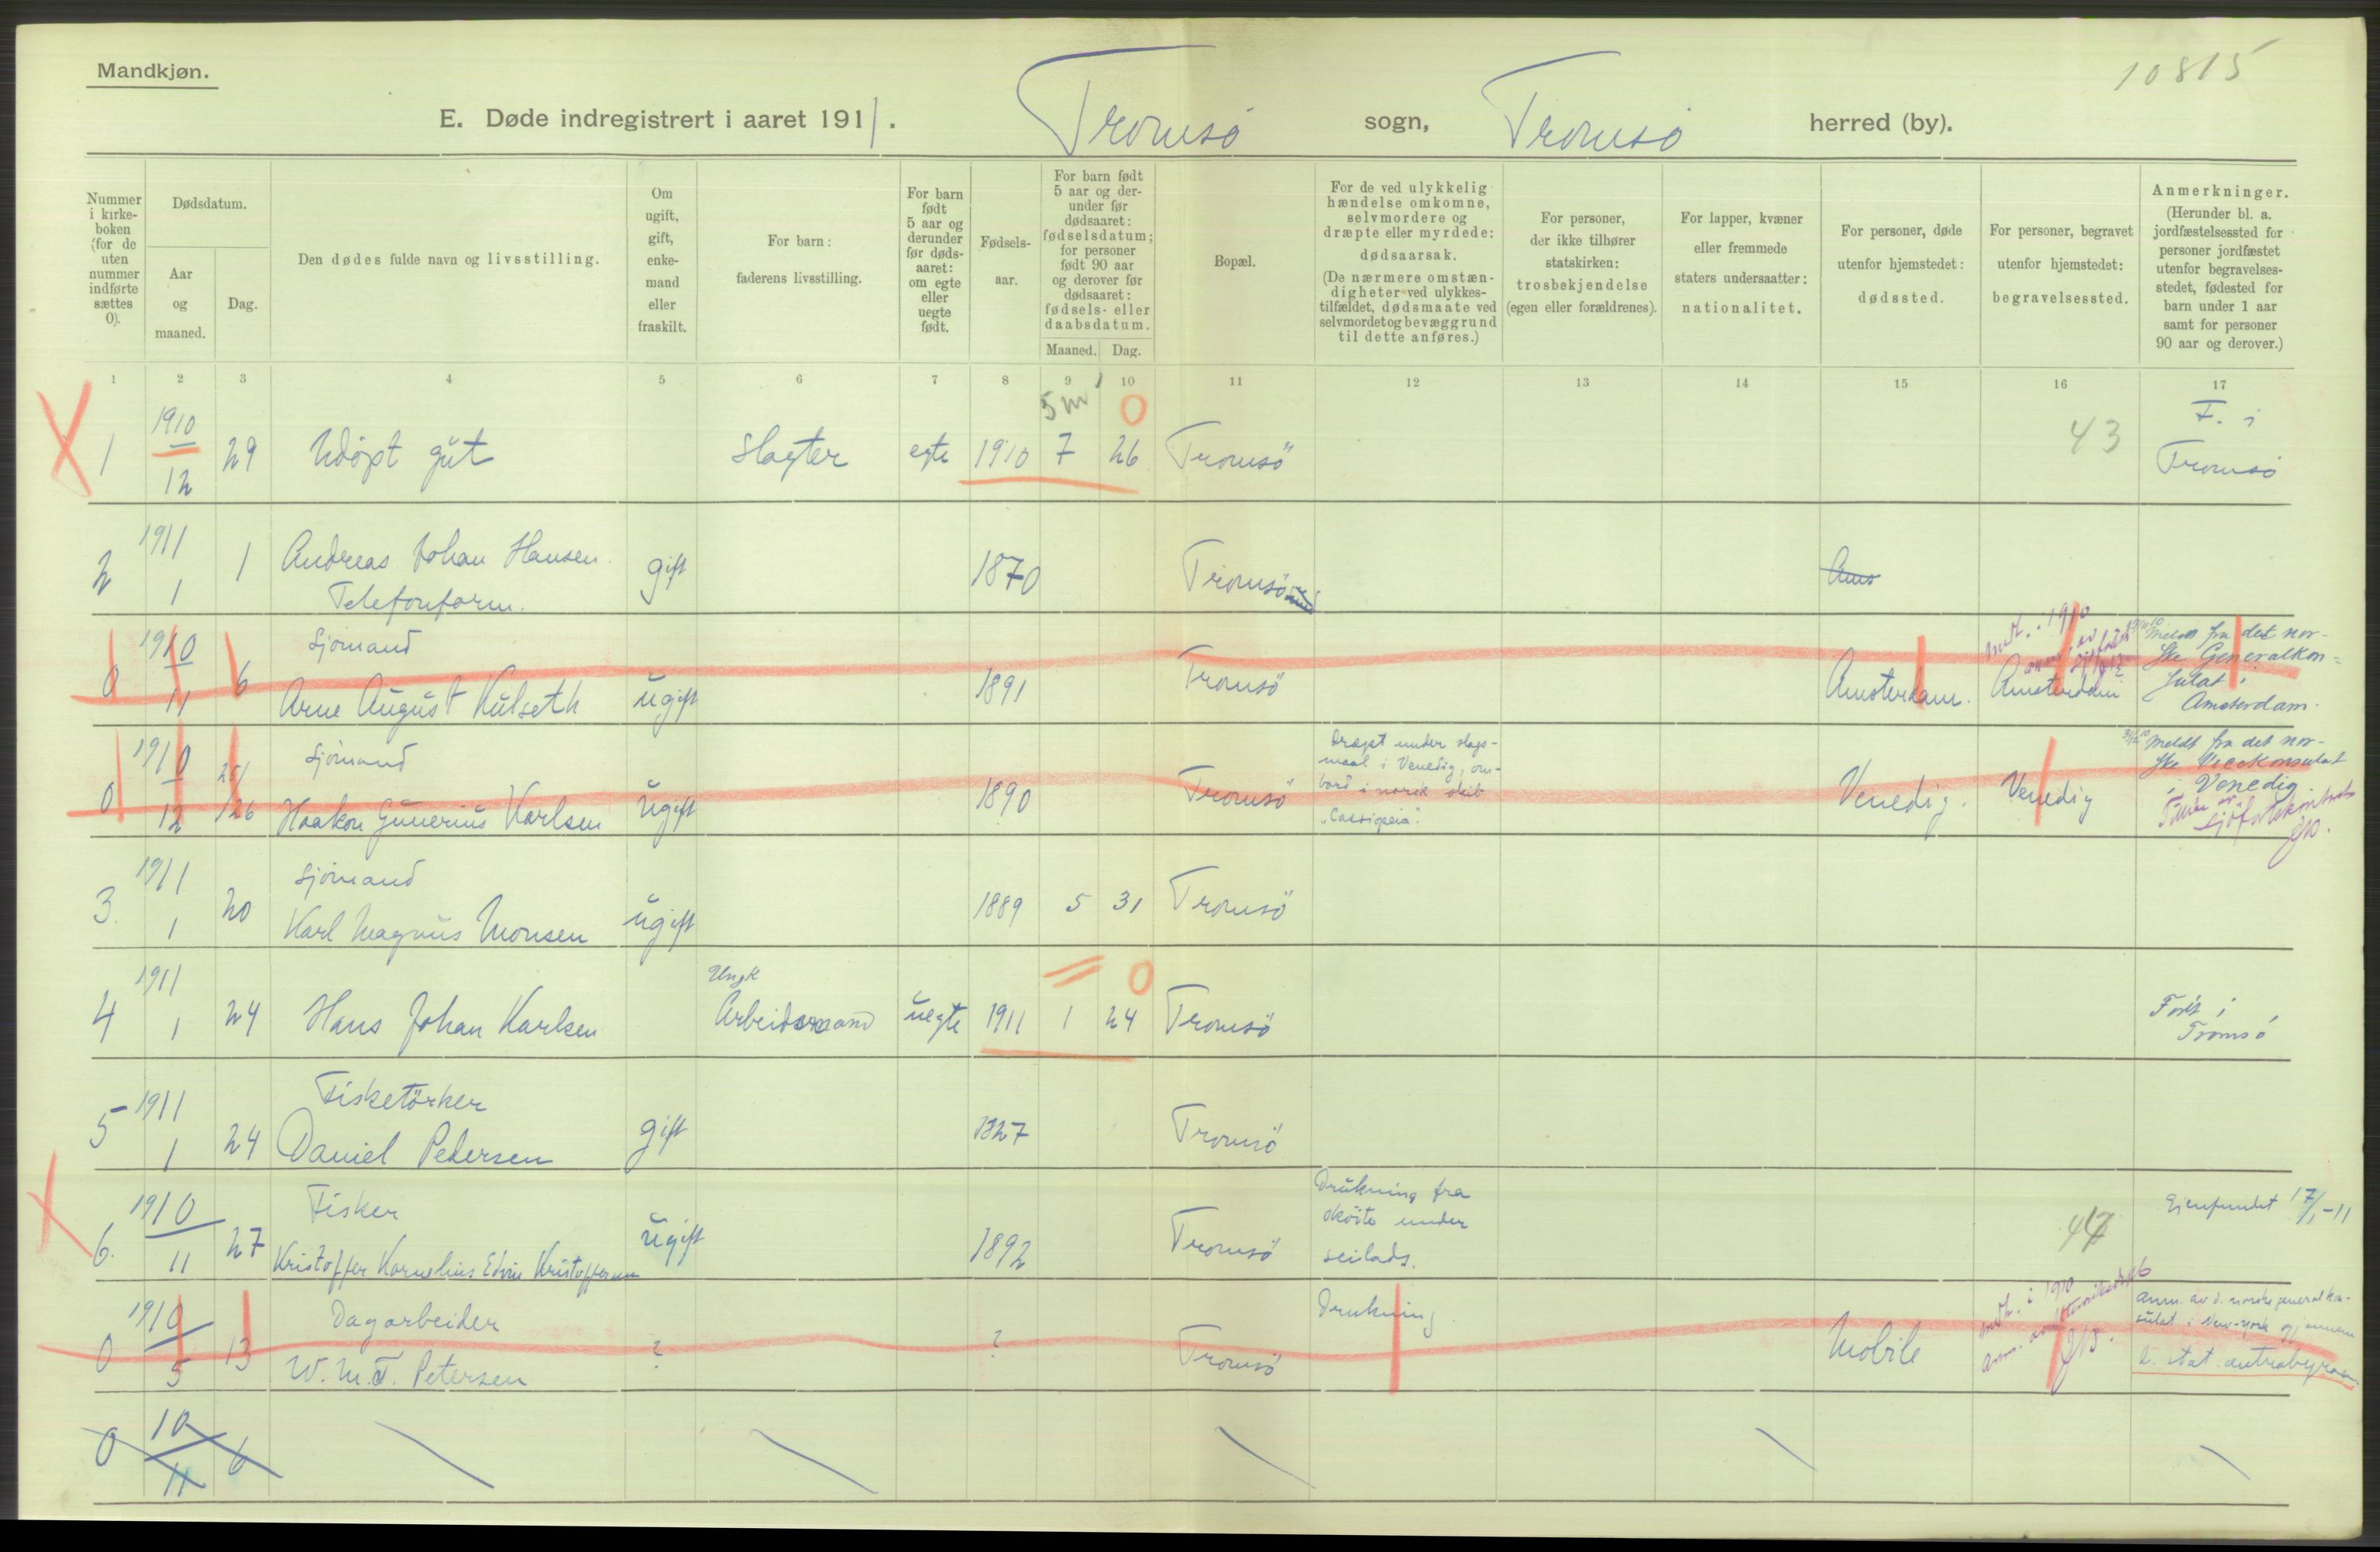 Mandkjøn.
10815
E. Døde indregistrert i aaret 1911. Tromsø sogn, Tromsø herred (by).
Nummer i kirke-boken (for de uten nummer indførte sættes 0).
Dødsdatum.
Aar og maaned.
Dag.
Den dødes fulde navn og livsstilling.
Om ugift, gift, enke-mand eller fraskilt.
For barn: faderens livsstilling.
For barn født 5 aar og derunder før døds-aaret: om egte eller uegte født.
Fødsels-aar.
For barn født 5 aar og der-under før dødsaaret: fødselsdatum; for personer født 90 aar og derover før dødsaaret: fødsels- eller daabsdatum.
Maaned. Dag.
Bopæl.
For de ved ulykkelig hændelse omkomne, selvmordere og dræpte eller myrdede: dødsaarsak.
(De nærmere omstæn-digheter ved ulykkes-tilfældet, dødsmaate ved selvmord et og bevæggrund til dette anføres.)
For personer, der ikke tilhører statskirken: trosbekjendelse (egen eller forældrenes).
For lapper, kvæner eller fremmede staters undersaatter: nationalitet.
For personer, døde utenfor hjemstedet: dødssted.
For personer, begravet utenfor hjemstedet: begravelsessted.
Anmerkninger.
(Herunder bl. a. jordfæstelsessted for personer jordfæstet utenfor begravelses-stedet, fødested for barn under 1 aar samt for personer 90 aar og derover.)
1 2 3 4 5 6 7 8 9 10 11 12 13 14 15 16 17
5 m 0
1 1910 12 29 Udöpt gut Slagter egte 1910 7 26 Tromsö 43 F. i Tromsö
2 1911 1 1 Andreas Johan Hansen
Telefonform. gift 1870 Tromsö Ams
0 1910 11 6 Sjömand
Arne August Kulseth ugift 1891 Tromsö Amsterdam. Amsterdam
medt. i 1910
Meldt fra det nor-
ske Generalkon-
sulat i
Amsterdam.
0 1910 12 25/26 Sjömand
Haakon Gunerius Karlsen ugift 1890 Tromsö
Dræpt under slags-
maal i Venedig, om-
bord i norsk skib
"Cassiopeia".
Venedig. Venedig
Meldt fra det nor-
ske Vicekonsulat
i Venedig.
3. 1911 1 20 Sjömand
Karl Magnus Monsen ugift 1889 5 31 Tromsö
0
4 1911 1 24 Hans Johan Karlsen Ungk Arbeidsmand uegte 1911 1 24 Tromsö Föds i Tromsö
5 1911 1 24 Fisketörker
Daniel Pedersen gift 1827 Tromsö
6. 1910 11 27 Fisker
Kristoffer Kornelius Edvin Kristoffersen ugift 1892 Tromsö
Drukning fra
sköite under
seilads.
44
Gjenfundet 17/1-11
0 1910 5 13 Dagarbeider
W. M. F. Petersen ? ? Tromsö Drukning Mobile
medt. i 1910
anm. av d. norske generalkon-
sulat i New-york gjennem
d. stat. centralbyraa.
0 10 11 6